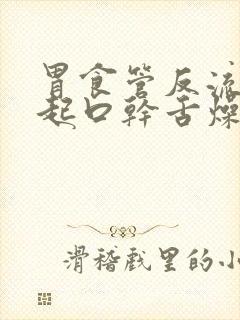 胃食管反流
起口幹舌燥
滑稽戲里的小